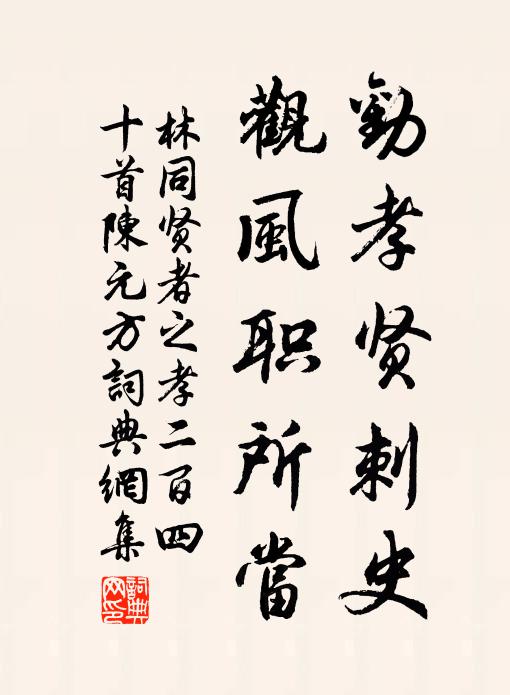 勸孝贤刺史
觀風职所當
林同贤者之孝二百四
十首陳元方詞典網集
詞典
网印